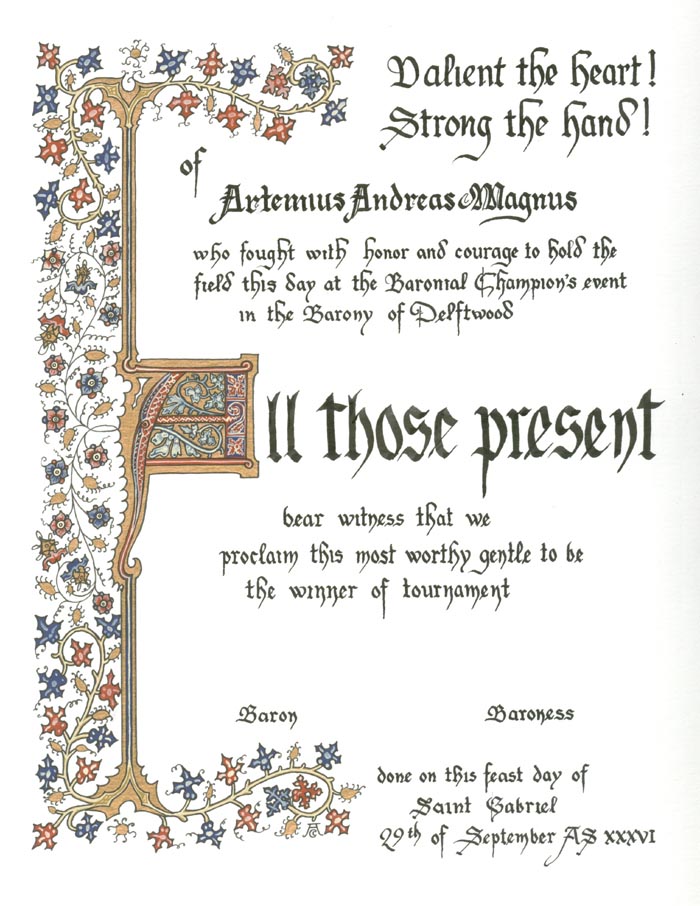 Valient the heart!
Strong the hand!
of
Artemius Andreas Magnus
who fought with honor and courage to hold the
field this day at the Baronial Champion's event
in the Barony of Delftwood
All those present
bear witness that we
proclaim this most worthy gentle to be
the winner of tournament
Baron Baroness
done on this feast day of
Saint Gabriel
29th of September AS XXXVI